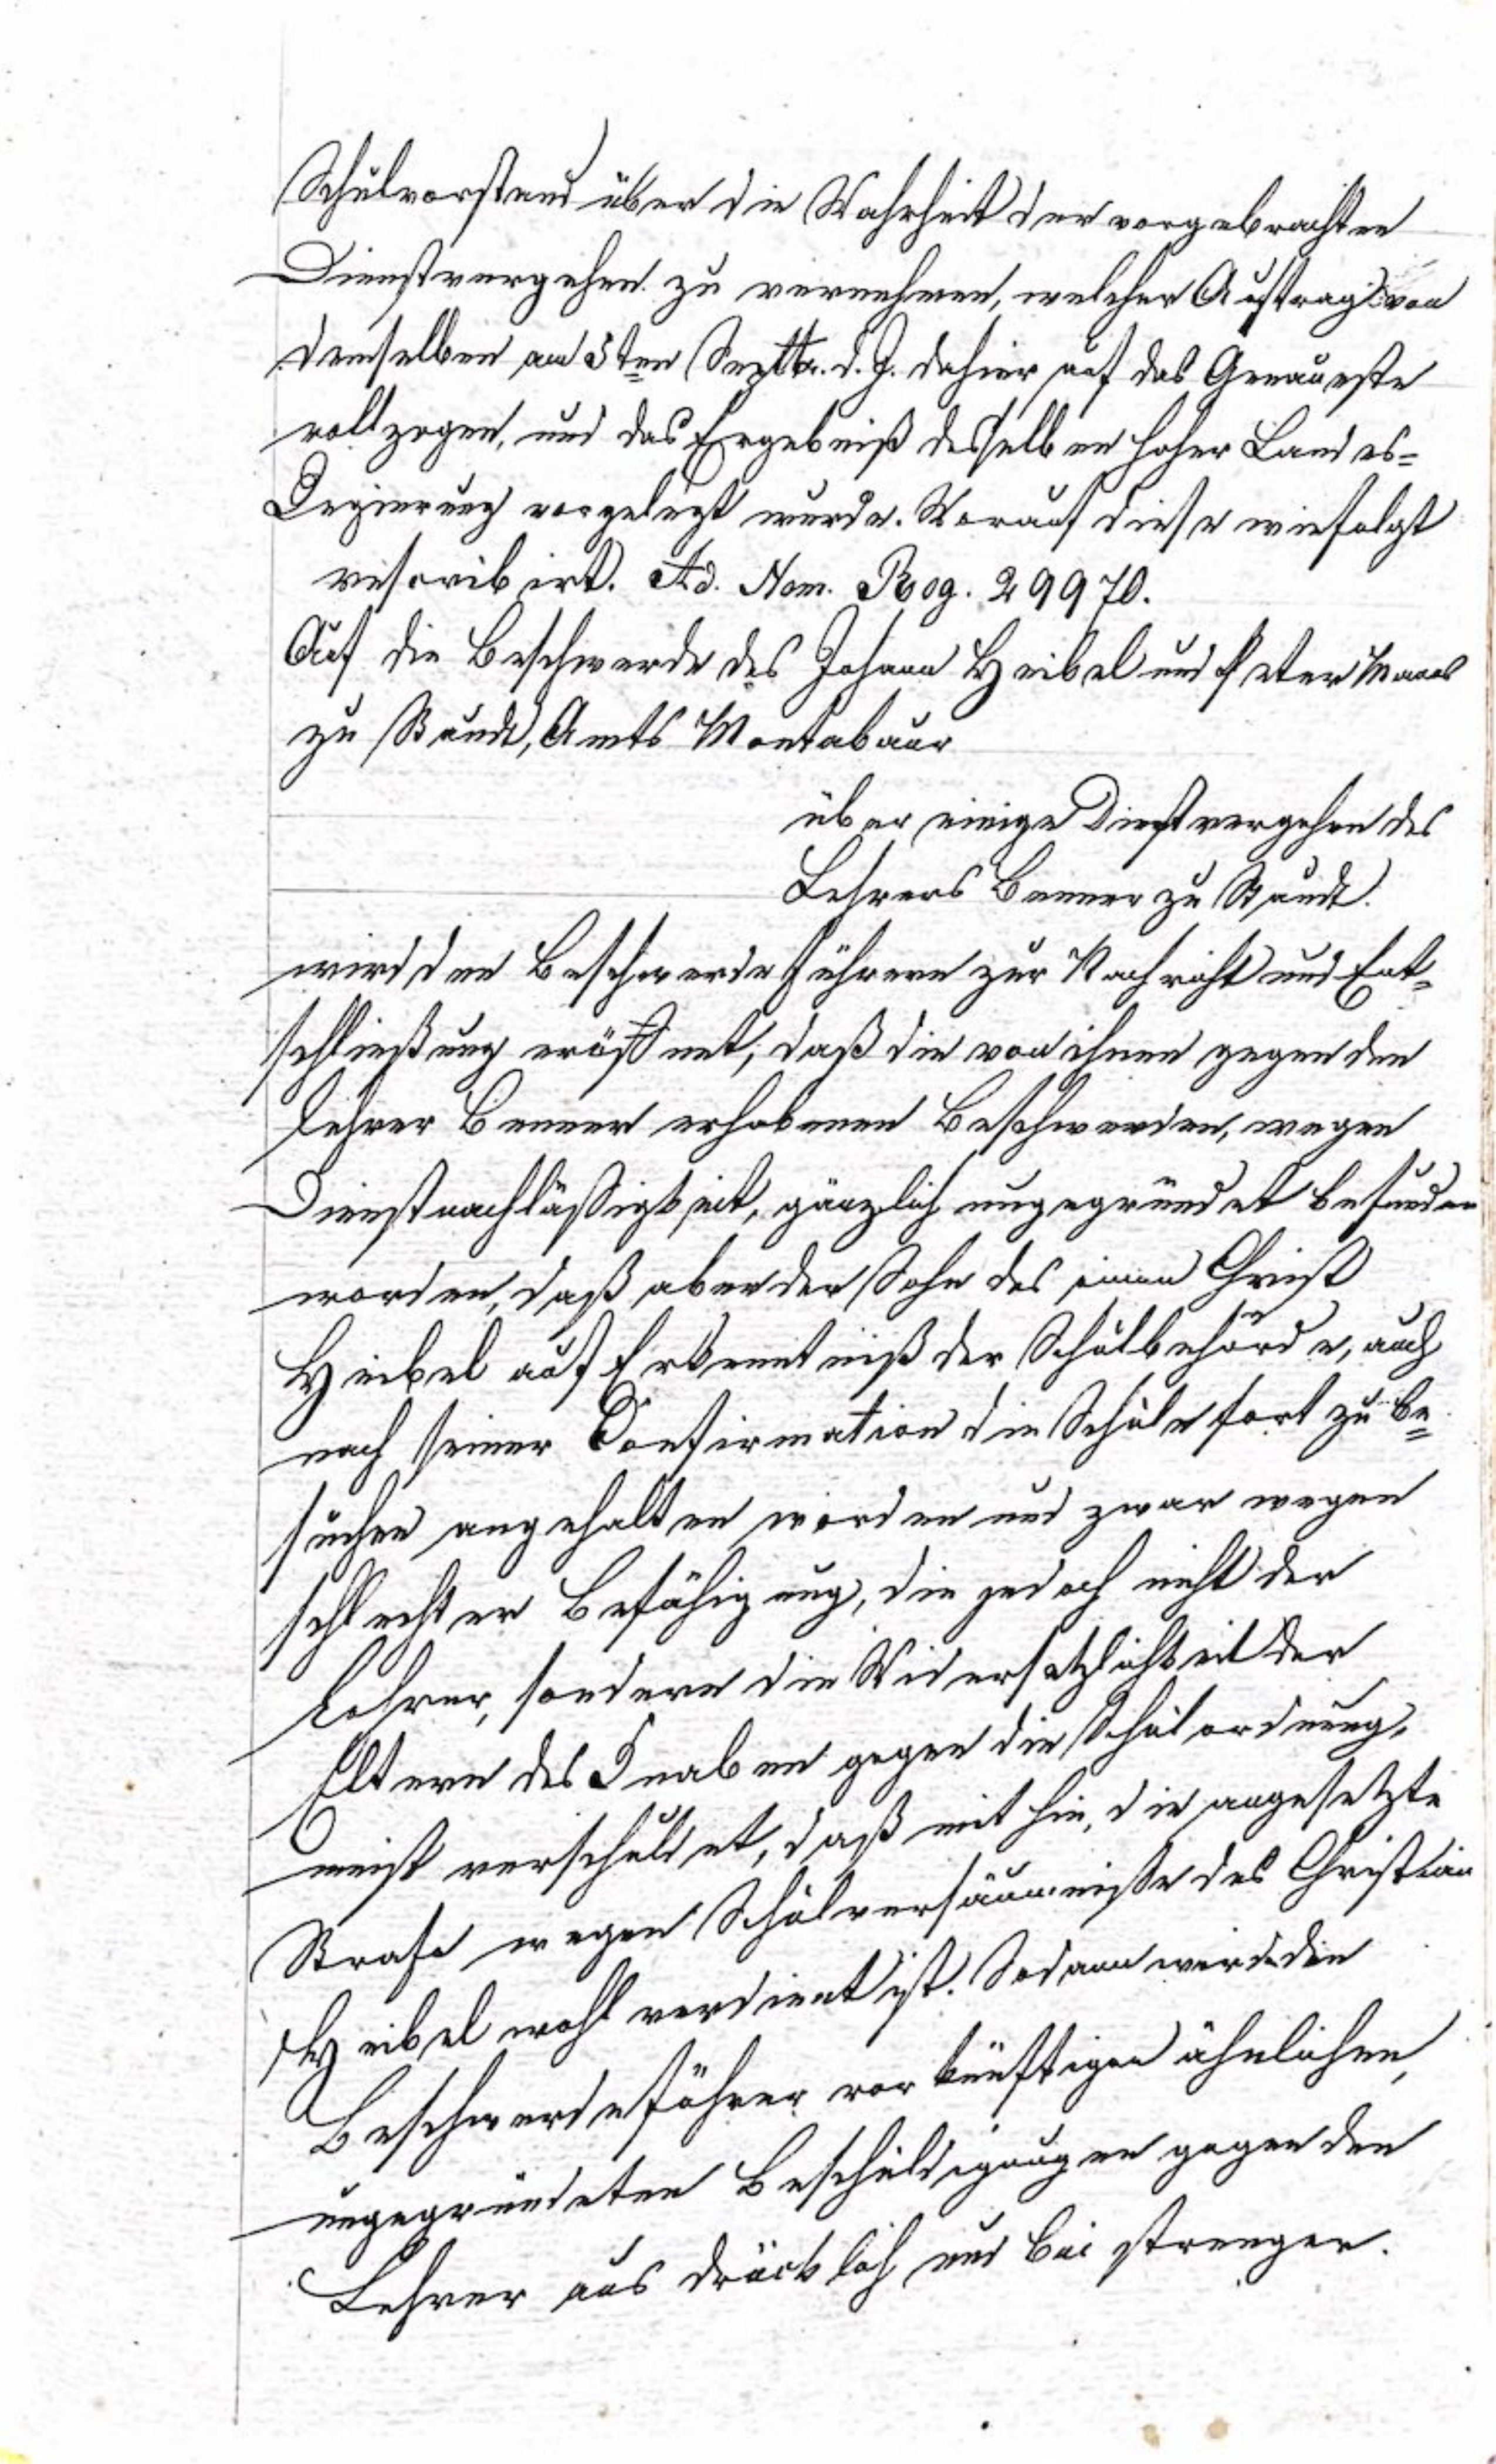 Schulvorstand über die Wahrheit der vorgebrachten
Dienstvergehen zu vernehmen, welcher Auftrag von
demselben am 5ten Septbr. d. J. dahier auf das Genaueste
vollzogen, und das Ergebniß desselben hoher Landes=
Regierung vorgelegt wurde. Worauf diese wie folgt
rescribirt. Ad. Num. Reg. 29970.
Auf die Beschwerde des Johann Heibel und Peter Maas
zu Staudt, Amts Montabaur
über einige Dienstvergehen des
Lehrers Benner zu Staudt.
wird den Beschwerdeführern zur Nachricht und Ent=
schließung eröffnet, daß die von ihnen gegen den
Lehrer Benner erhobenen Beschwerden, wegen
Dienstnachläßigkeit, gänzlich ungegründet befunden
worden, daß aber der Sohn des einen Christ
Heibel auf Erkenntniß der Schulbehörde, auch
nach seiner Confirmation die Schule fort zu be=
suchen angehalten worden und zwar wegen
schlechter Befähigung, die jedoch nicht der
Lehrer, sondern die Widersetzlichkeit der
Eltern des Knaben gegen die Schulordnung,
meist verschuldet, daß mithin, die angesetzte
Strafe wegen Schulversäumniße des Christian
Heibel wohl verdient ist. Sodann werden die
Beschwerdeführer vor künftigen ähnlichen,
ungegründeten Beschuldigungen gegen den
Lehrer ausdrücklich und bei strenger.